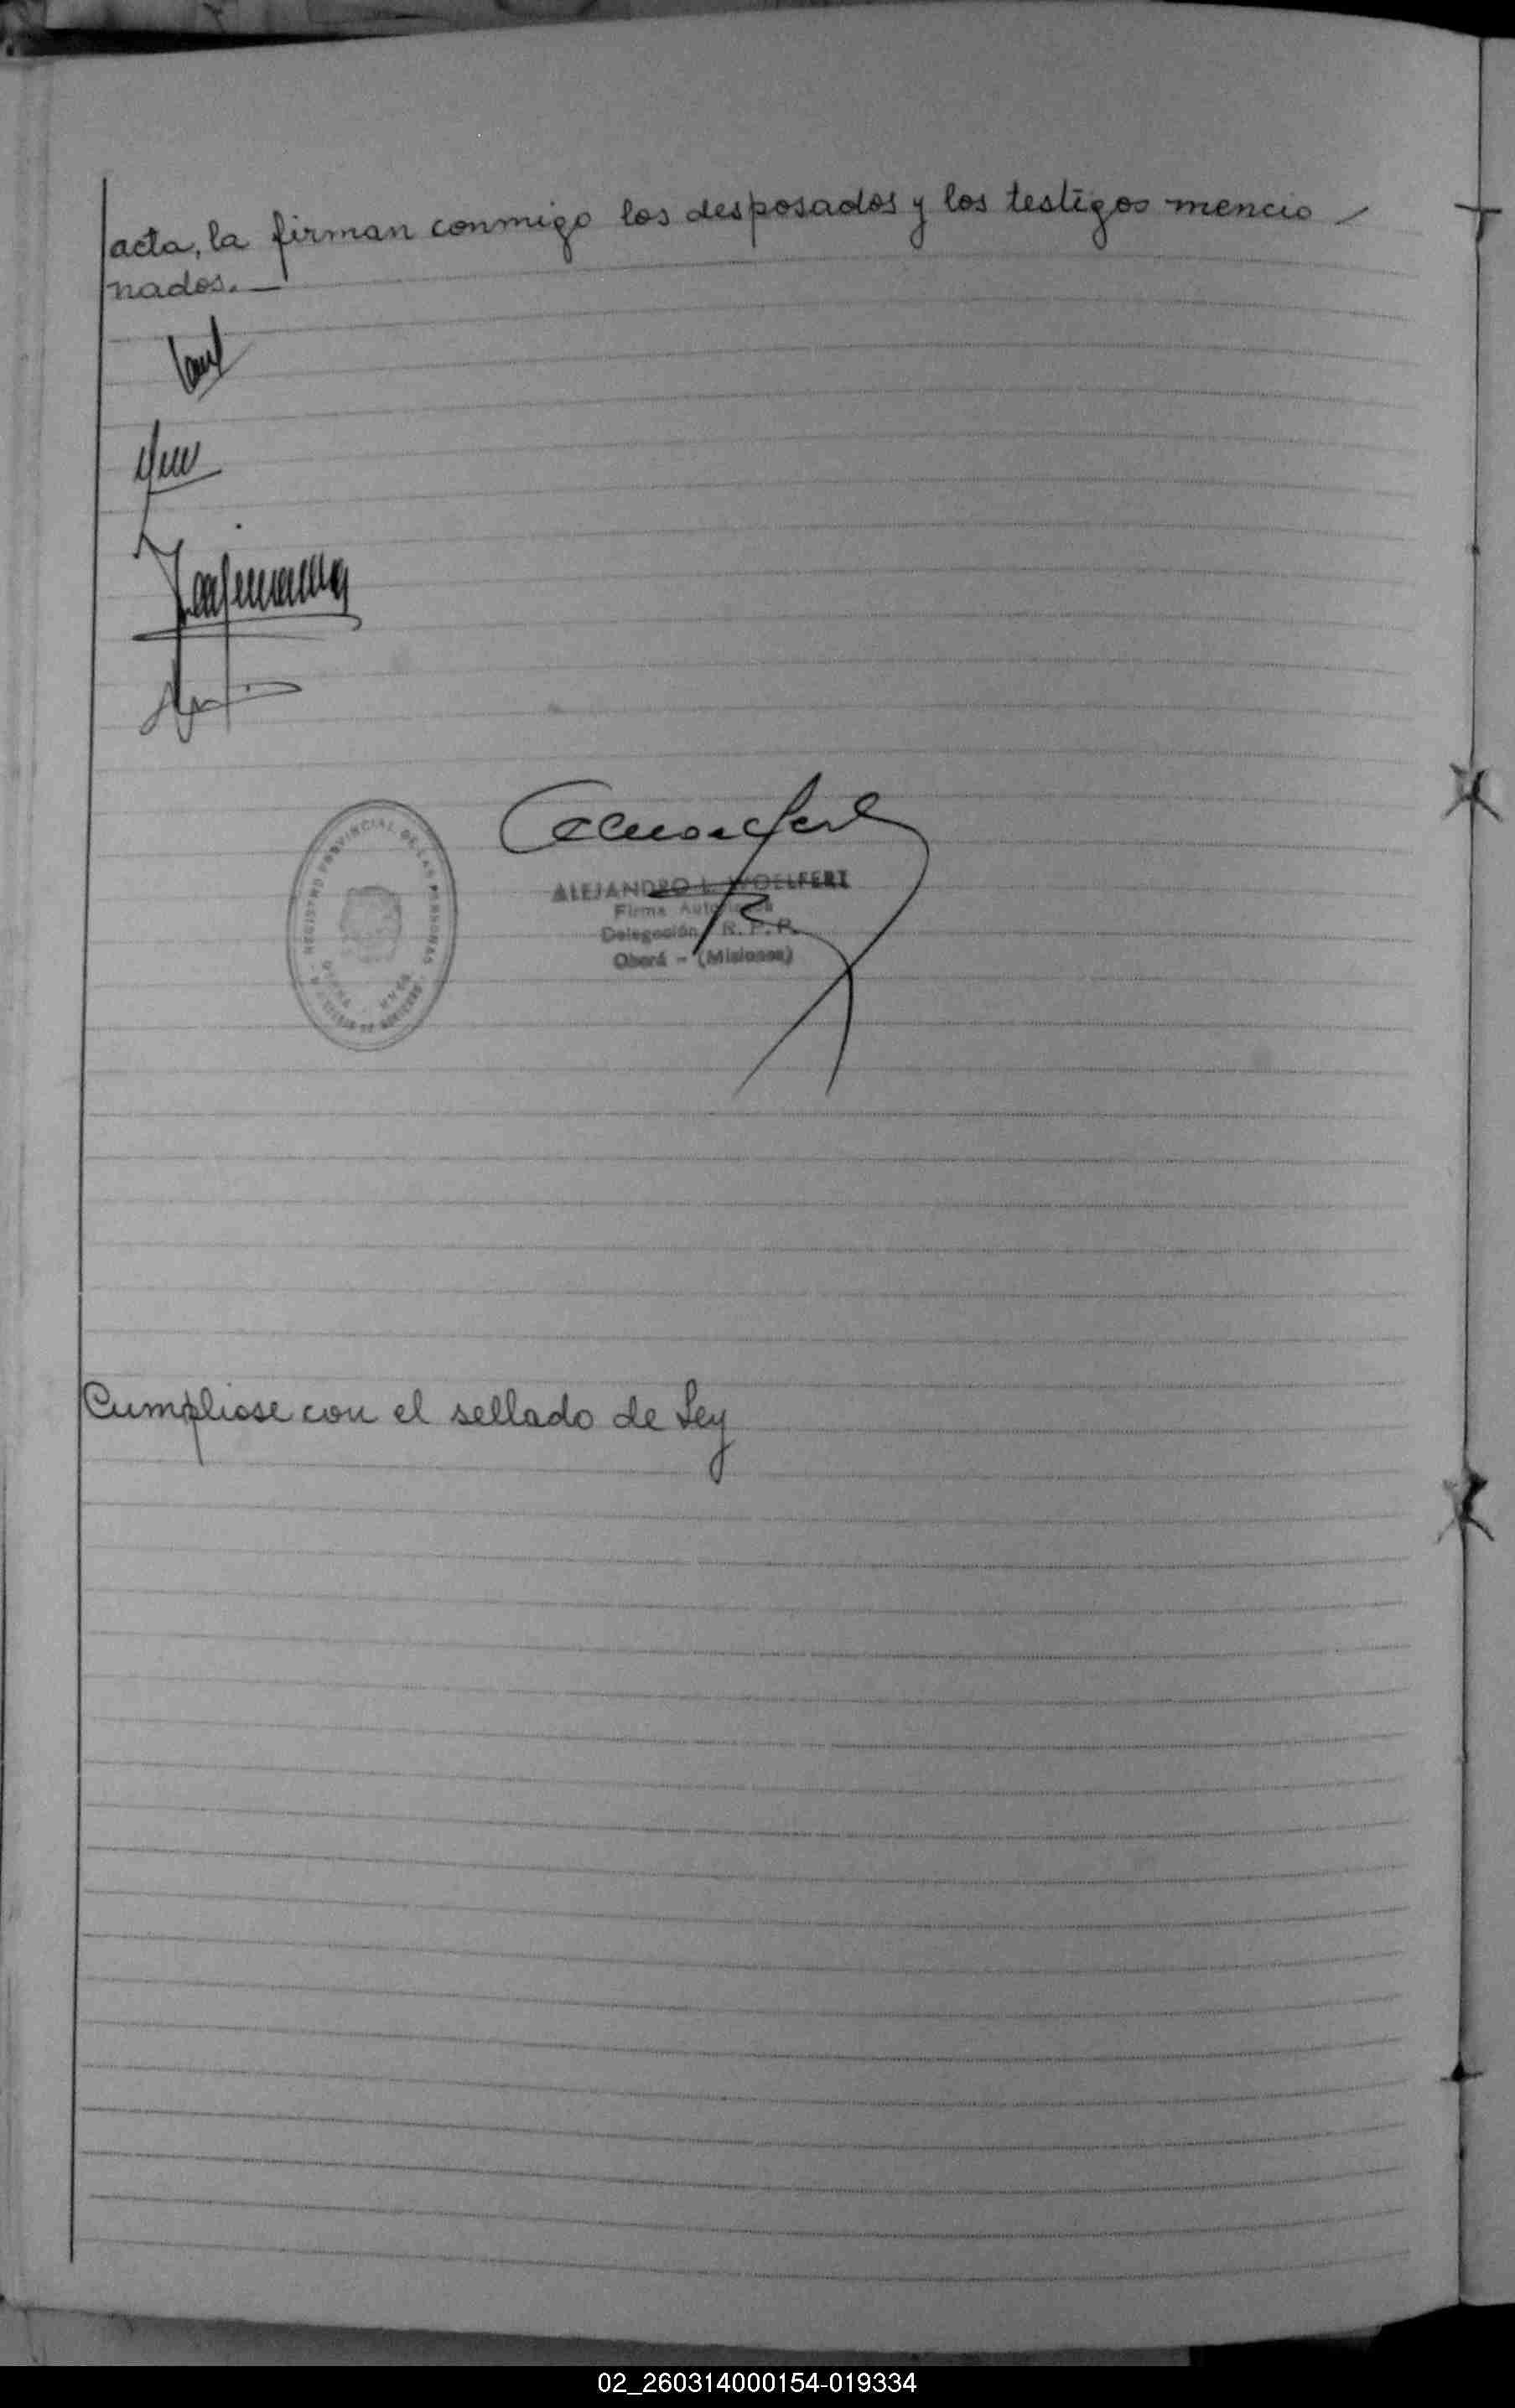 acta, la firman conmigo los desposados y los testigos mencio
nados. —
REGISTRO PROVINCIAL DE LAS PERSONAS
ALEJANDRO L. WOELFERT
Firma Autorizada
Delegación R. P. P.
Oberá - (Misiones)
Cumpliose con el sellado de Ley
02_260314000154-019334